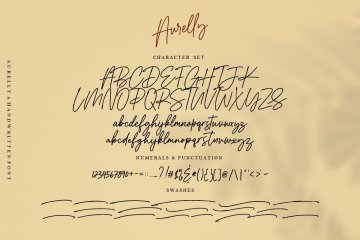 Aurelly
CHARACTER SET
ABCDEFGHIJK
LMNOPQRSTUVWXYZS
abcdefghijklmnopqrstuvwxyz
abcdefghijklmnopqrstuvwxyz
NUMERALS & PUNCTUATION
SWASHES
AURELLY A HANDWRITTEN FONT